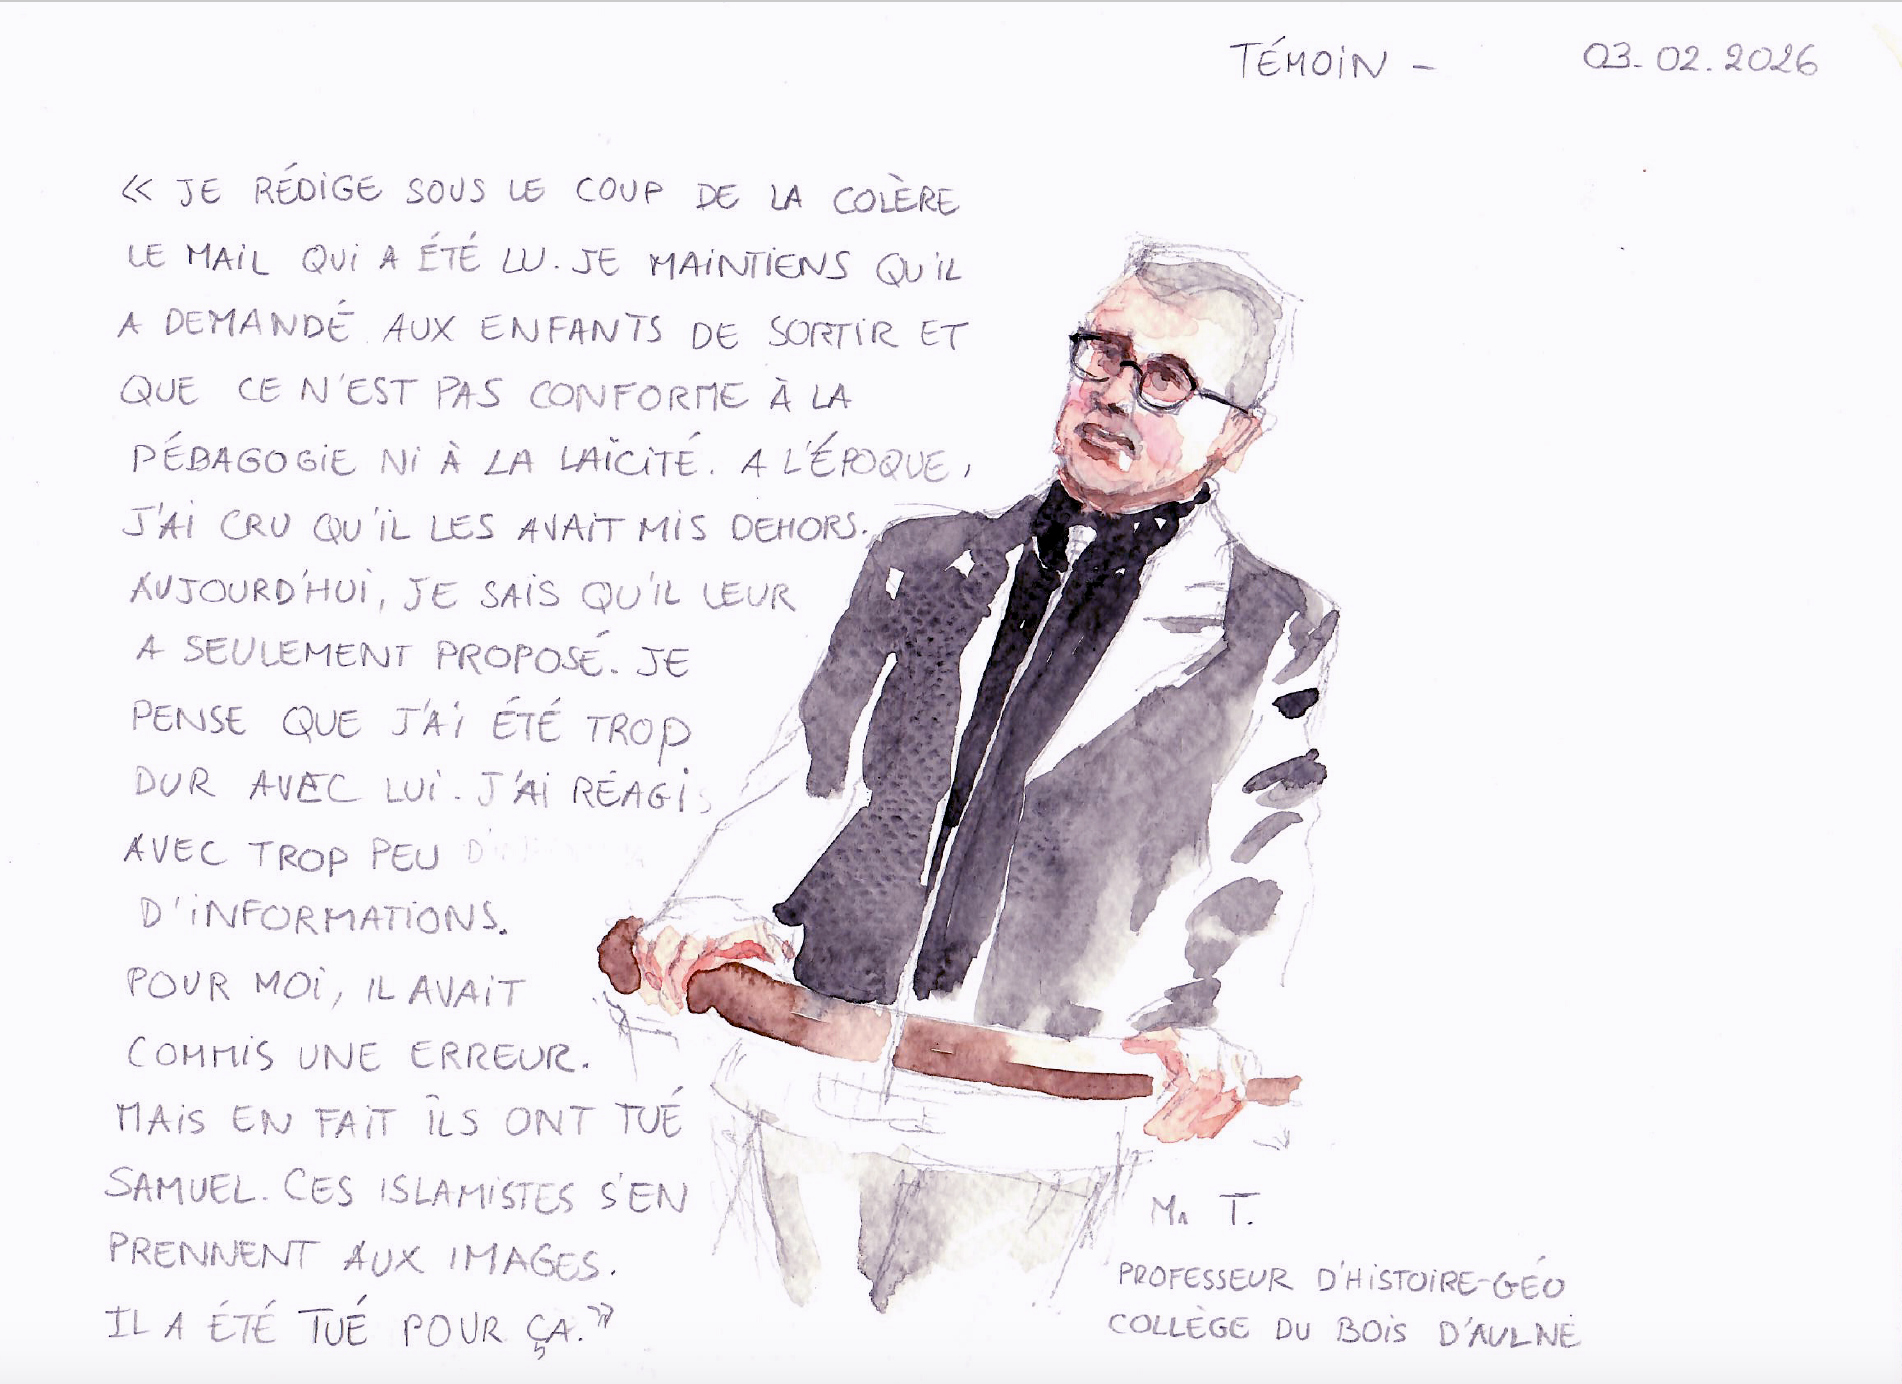 TÉMOIN - 03.02.2026
« JE RÉDIGE SOUS LE COUP DE LA COLÈRE
LE MAIL QUI A ÉTÉ LU. JE MAINTIENS QU'IL
A DEMANDÉ AUX ENFANTS DE SORTIR ET
QUE CE N'EST PAS CONFORME À LA
PÉDAGOGIE NI À LA LAÏCITÉ. A L'ÉPOQUE,
J'AI CRU QU'IL LES AVAIT MIS DEHORS.
AUJOURD'HUI, JE SAIS QU'IL LEUR
A SEULEMENT PROPOSÉ. JE
PENSE QUE J'AI ÉTÉ TROP
DUR AVEC LUI. J'AI RÉAGI
AVEC TROP PEU
D'INFORMATIONS.
POUR MOI, IL AVAIT
COMMIS UNE ERREUR.
MAIS EN FAIT ILS ONT TUÉ
SAMUEL. CES ISLAMISTES S'EN
PRENNENT AUX IMAGES.
IL A ÉTÉ TUÉ POUR ÇA. »
Mr T.
PROFESSEUR D'HISTOIRE-GÉO
COLLÈGE DU BOIS D'AULNE